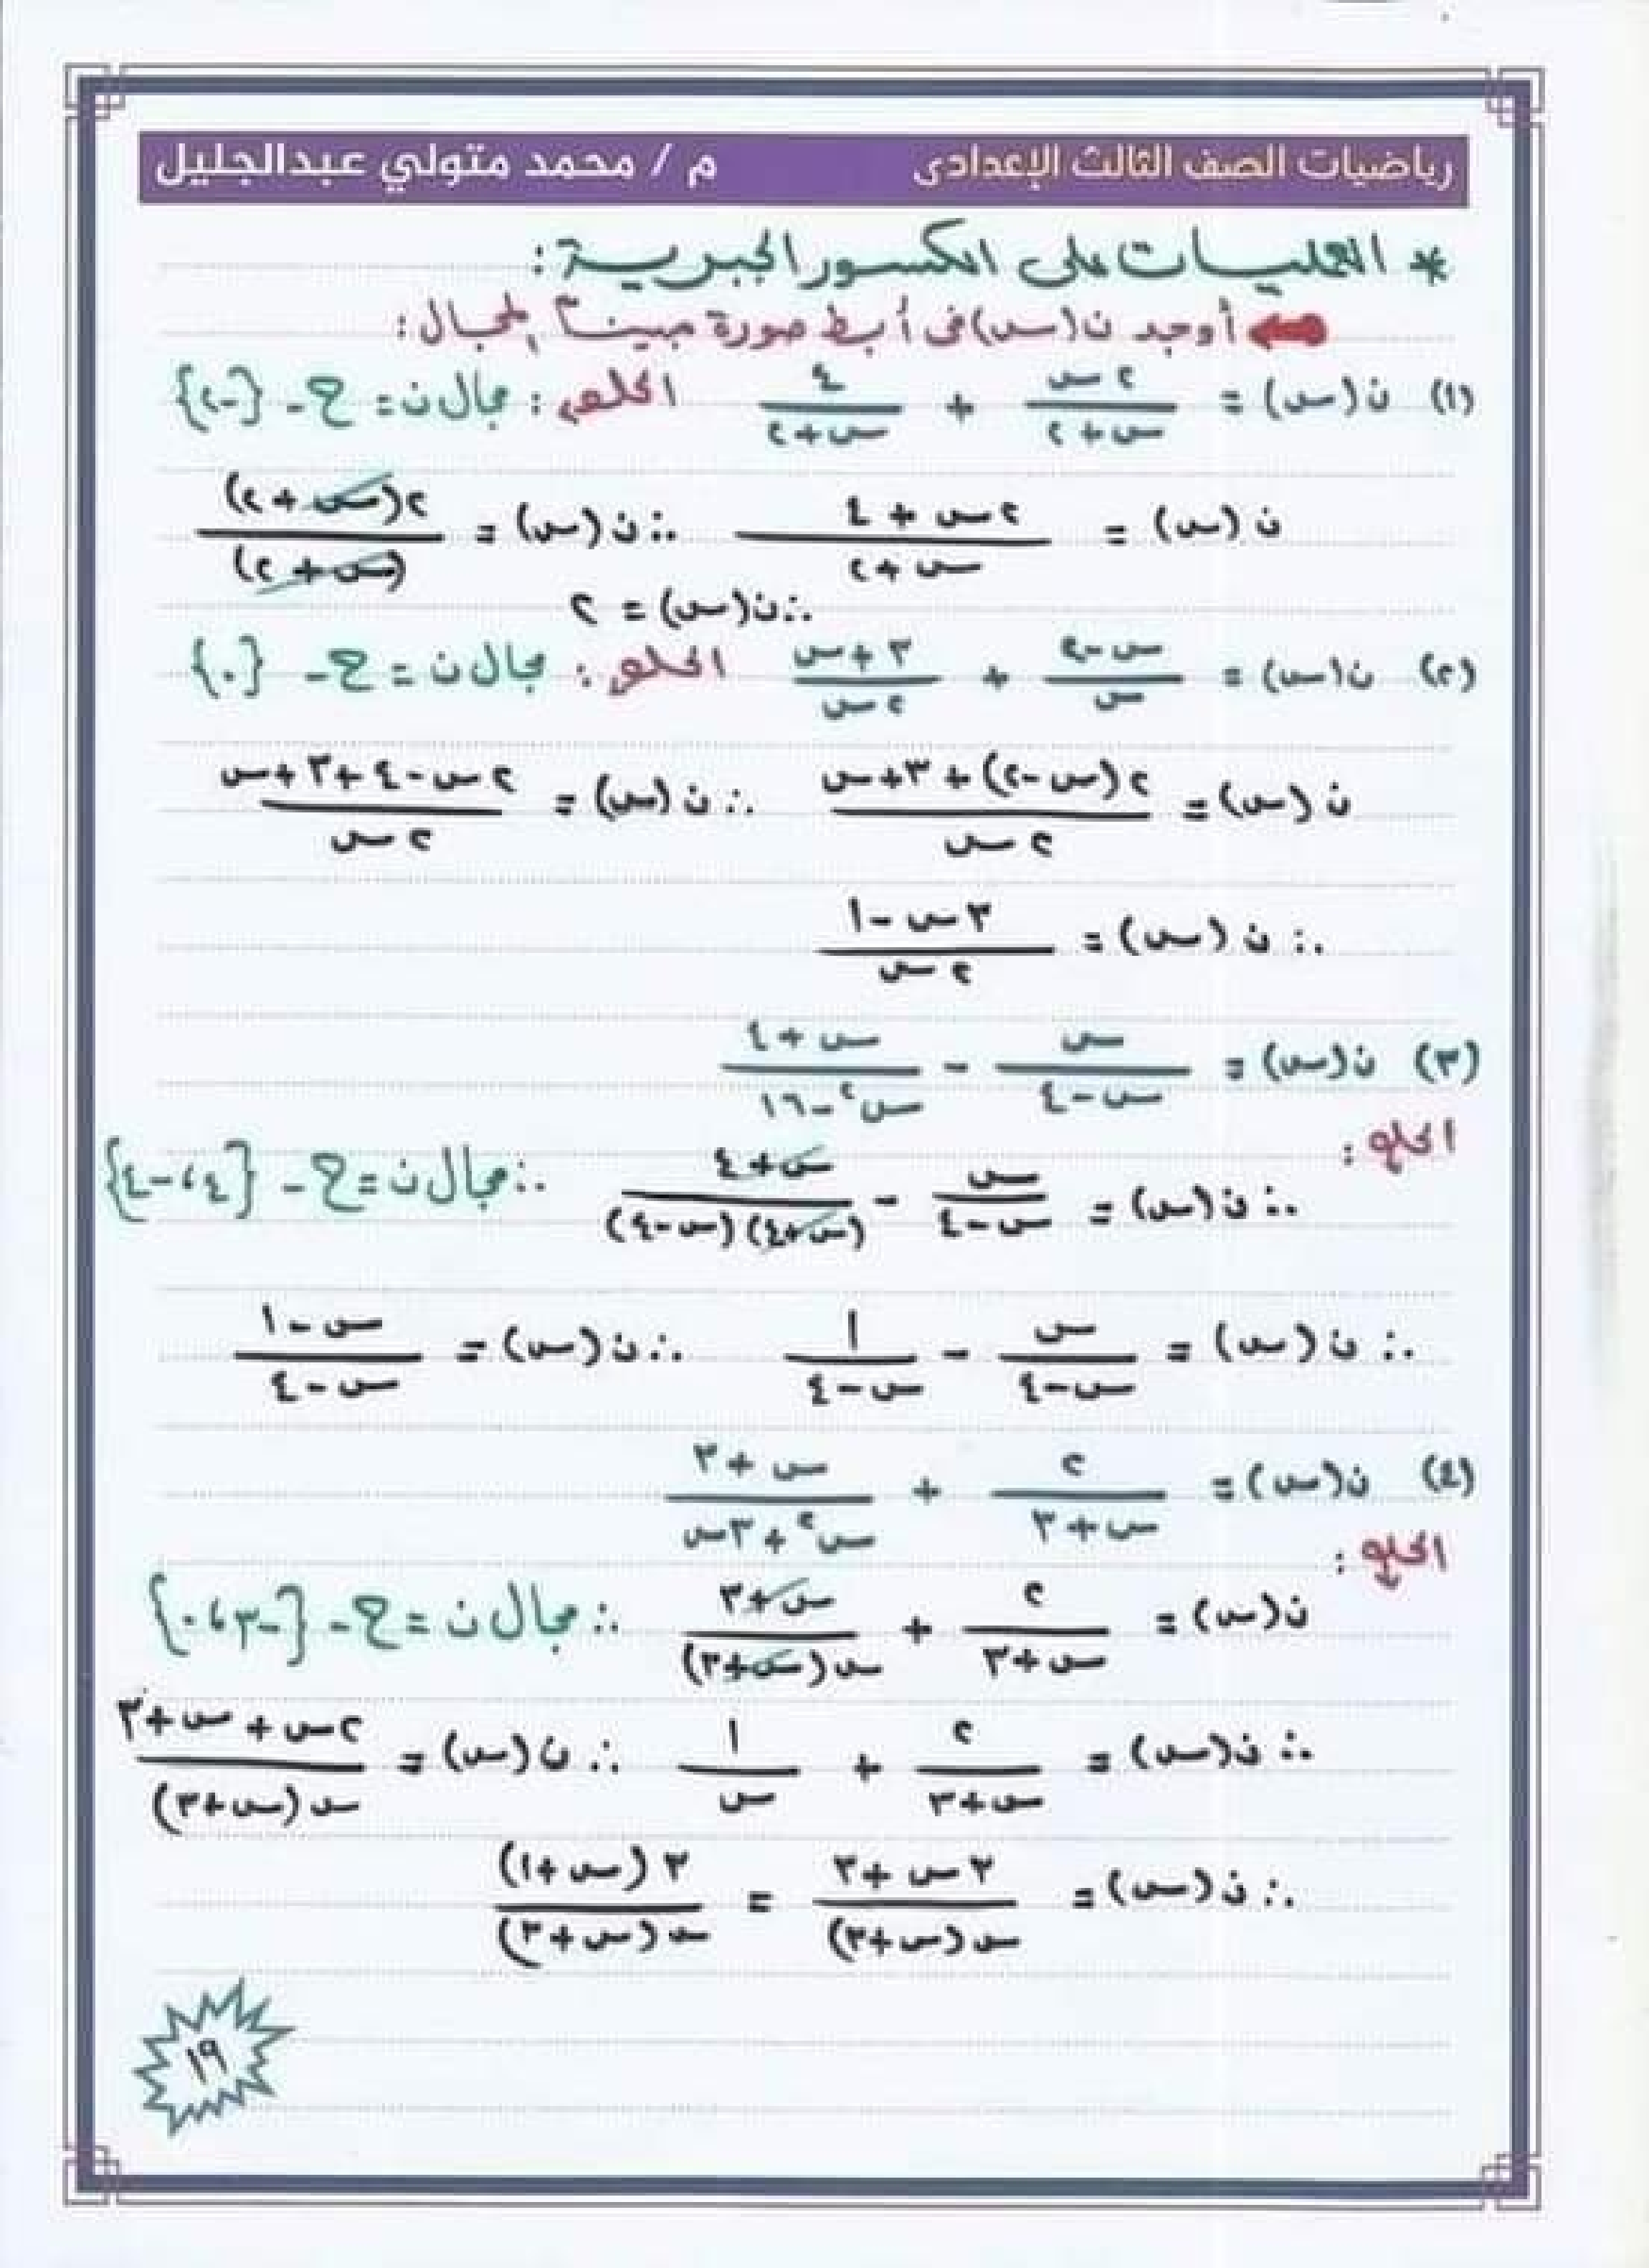 رياضيات الصف الثالث الإعدادى م / محمد متولي عبدالجليل
* العمليات على الكسور الجبرية :
أوجد ن(س) فى أبسط صورة مبيناً المجال :
(١) ن(س) = ٢س / س+٢ + ٤ / س+٢ الحل : مجال ن = ح - {-٢}
ن(س) = ٢س + ٤ / س+٢ ∴ ن(س) = ٢(س+٢) / (س+٢)
∴ ن(س) = ٢
(٢) ن(س) = س-٢ / س + ٣+س / ٢س الحل : مجال ن = ح - {٠}
ن(س) = ٢(س-٢) + ٣+س / ٢س ∴ ن(س) = ٢س-٤+٣+س / ٢س
∴ ن(س) = ٣س-١ / ٢س
(٣) ن(س) = س / س-٤ - س+٤ / س٢-١٦
الحل :
∴ ن(س) = س / س-٤ - س+٤ / (س+٤)(س-٤) ∴ مجال ن = ح - {٤،-٤}
∴ ن(س) = س / س-٤ - ١ / س-٤ ∴ ن(س) = س-١ / س-٤
(٤) ن(س) = ٢ / س+٣ + س+٣ / س٢+٣س
الحل :
ن(س) = ٢ / س+٣ + س+٣ / س(س+٣) ∴ مجال ن = ح - {-٣،٠}
∴ ن(س) = ٢ / س+٣ + ١ / س ∴ ن(س) = ٢س+س+٣ / س(س+٣)
∴ ن(س) = ٣س+٣ / س(س+٣) = ٣(س+١) / س(س+٣)
١٩